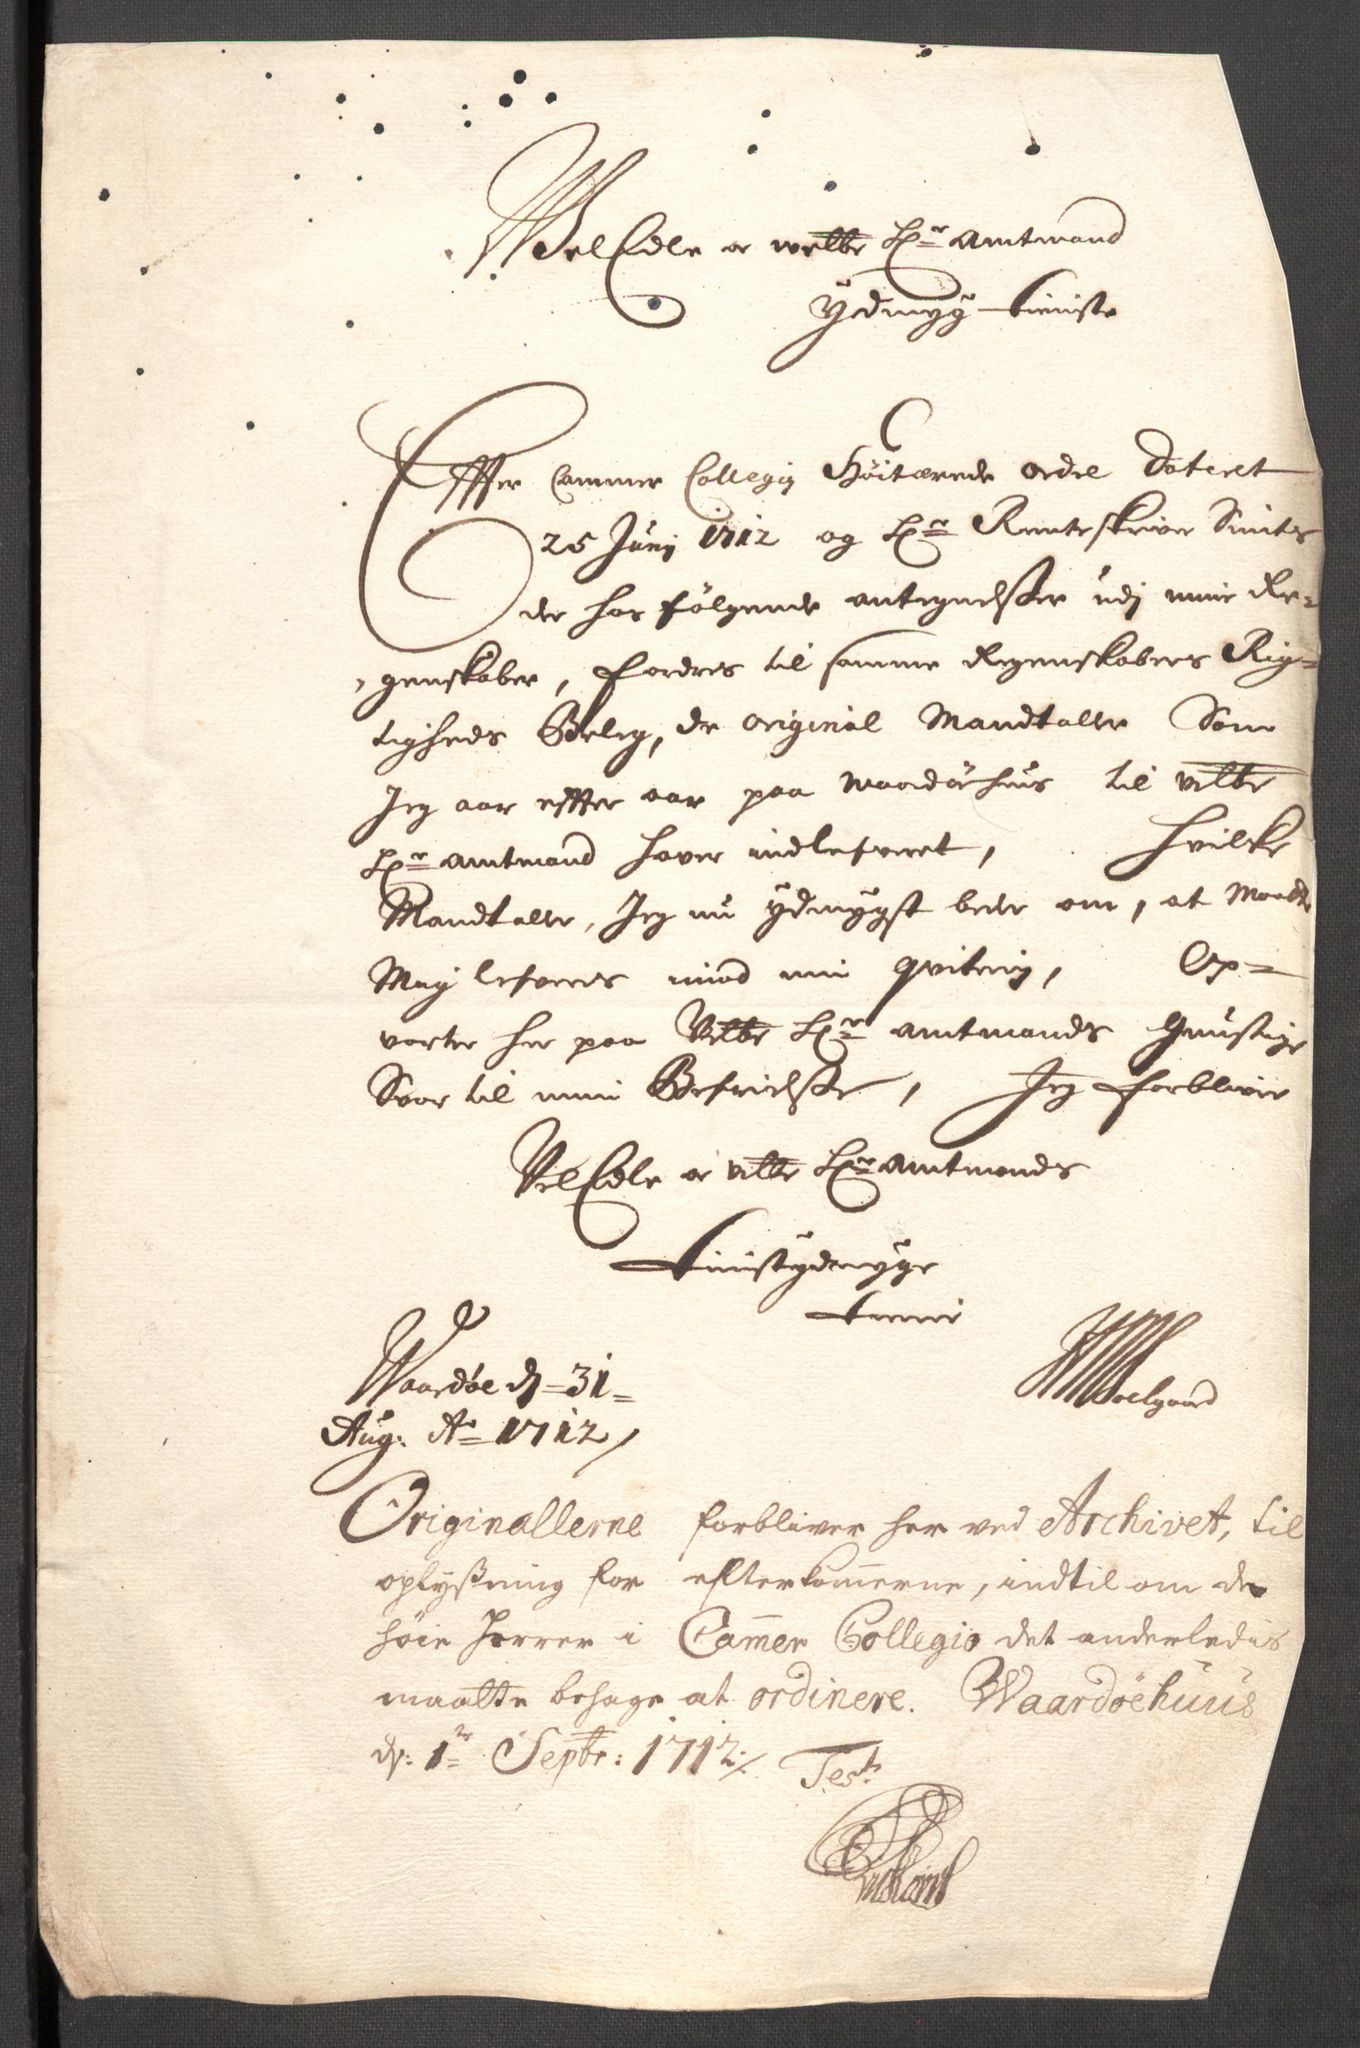 WelEdle oc welbr Hr Amtmand
Ydmyg tieniste
Effter Cammer Collegij Höitærede ordre Dateret
25 Junj 1712 og Hr Renteskriver Smits
der hos følgende antegnelsser udj mine Re-
genskaber, fordres til samme Regenskabers Rig-
tigheds Beleg, de original Mandtaller Som
Jeg aar effter aar paa Waardøehuus til velbr
Hr Amtmand haver indlefveret, hvilke
Mandtaller, Jeg nu ydmygst beder om, at Maatte
Mig lefveres imod min qvitering, Op-
varter her paa Velbr Hr Amtmands Gunstige
Svar til min Befrielsse, Jeg forbliver
VelEdle oc velbr Hr Amtmands
tienistydmyge
tiener
Waardøe d 31
Aug: Ao 1712
Soelgaard
Originallerne forbliver her ved Archivet, til
oplyßning for efterkommerne, indtil om de
høie Herrer i Cammer Collegio det anderledis
maatte behage at ordinere. Waardøehuus
d: 1 Septbr: 1712
Test: